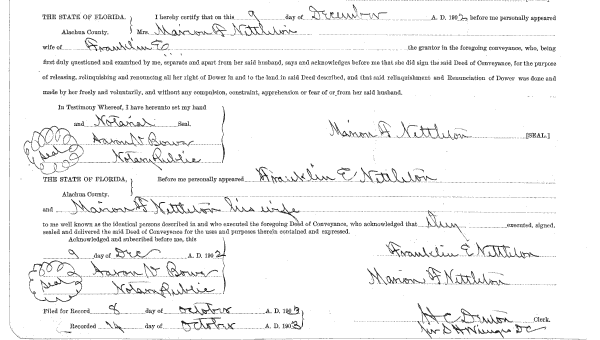 THE STATE OF FLORIDA, I hereby certify that on this 9 day of December A. D. 1902 before me personally appeared
Alachua County. Mrs. Marion F Nettleton
wife of Franklin E. the grantor in the foregoing conveyance, who, being
first duly questioned and examined by me, separate and apart from her said husband, says and acknowledges before me that she did sign the said Deed of Conveyance, for the purpose
of releasing, relinquishing and renouncing all her right of Dower in and to the land in said Deed described, and that said relinquishment and Renunciation of Dower was done and
made by her freely and voluntarily, and without any compulsion, constraint, apprehension or fear of or from her said husband.
In Testimony Whereof, I have hereunto set my hand
and Notarial Seal.
Marion F Nettleton [SEAL.]
Seal Aaron V Bower
Notary Public
THE STATE OF FLORIDA, Before me personally appeared Franklin E Nettleton
Alachua County.
and Marion F Nettleton his wife
to me well known as the identical persons described in and who executed the foregoing Deed of Conveyance, who acknowledged that they executed, signed,
sealed and delivered the said Deed of Conveyance for the uses and purposes therein contained and expressed.
Acknowledged and subscribed before me, this
9 day of Dec A. D. 1902
Franklin E Nettleton
Seal Aaron V Bower
Marion F Nettleton
Notary Public
Filed for Record 8 day of October A. D. 1903
H C Denton Clerk.
Recorded 14 day of October A. D. 1903
D C